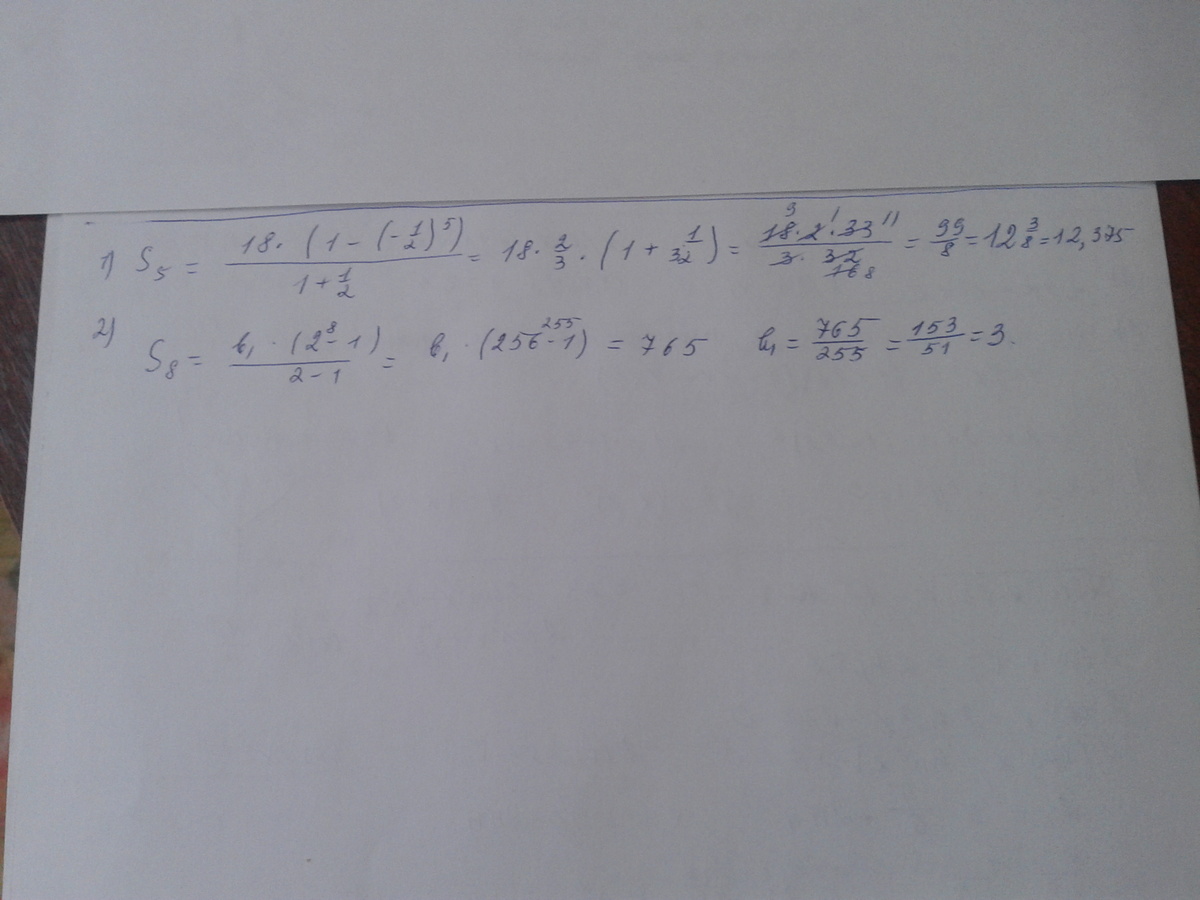 1) S₅ = 18·(1-(-1/2)⁵) / 1+1/2 = 18·2/3·(1+1/32) = 18·2·33 / 3·32 = 99/8 = 12 3/8 = 12,375
2) S₈ = b₁·(2⁸-1) / 2-1 = b₁·(256-1) = 765 b₁ = 765/255 = 153/51 = 3.